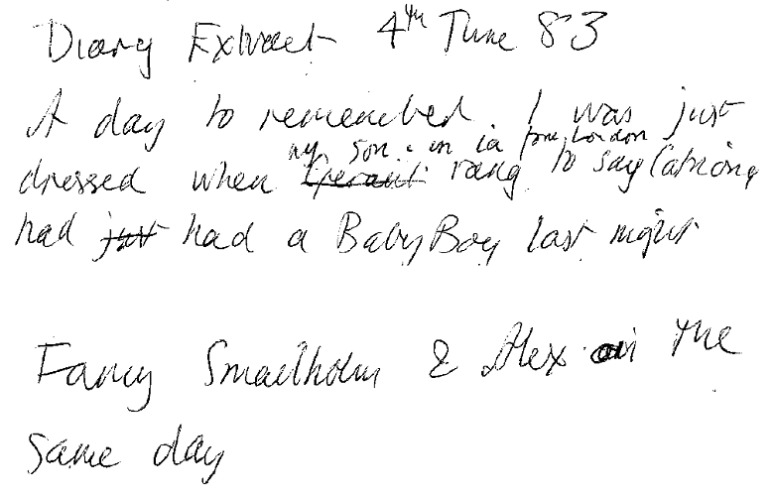 Diary Extract 4th June 83
A day to remember. I was just
my son in law from London
dressed when rang to say Catriona
had just had a Baby Boy last night
Fancy Smailholm & Alex on the
same day